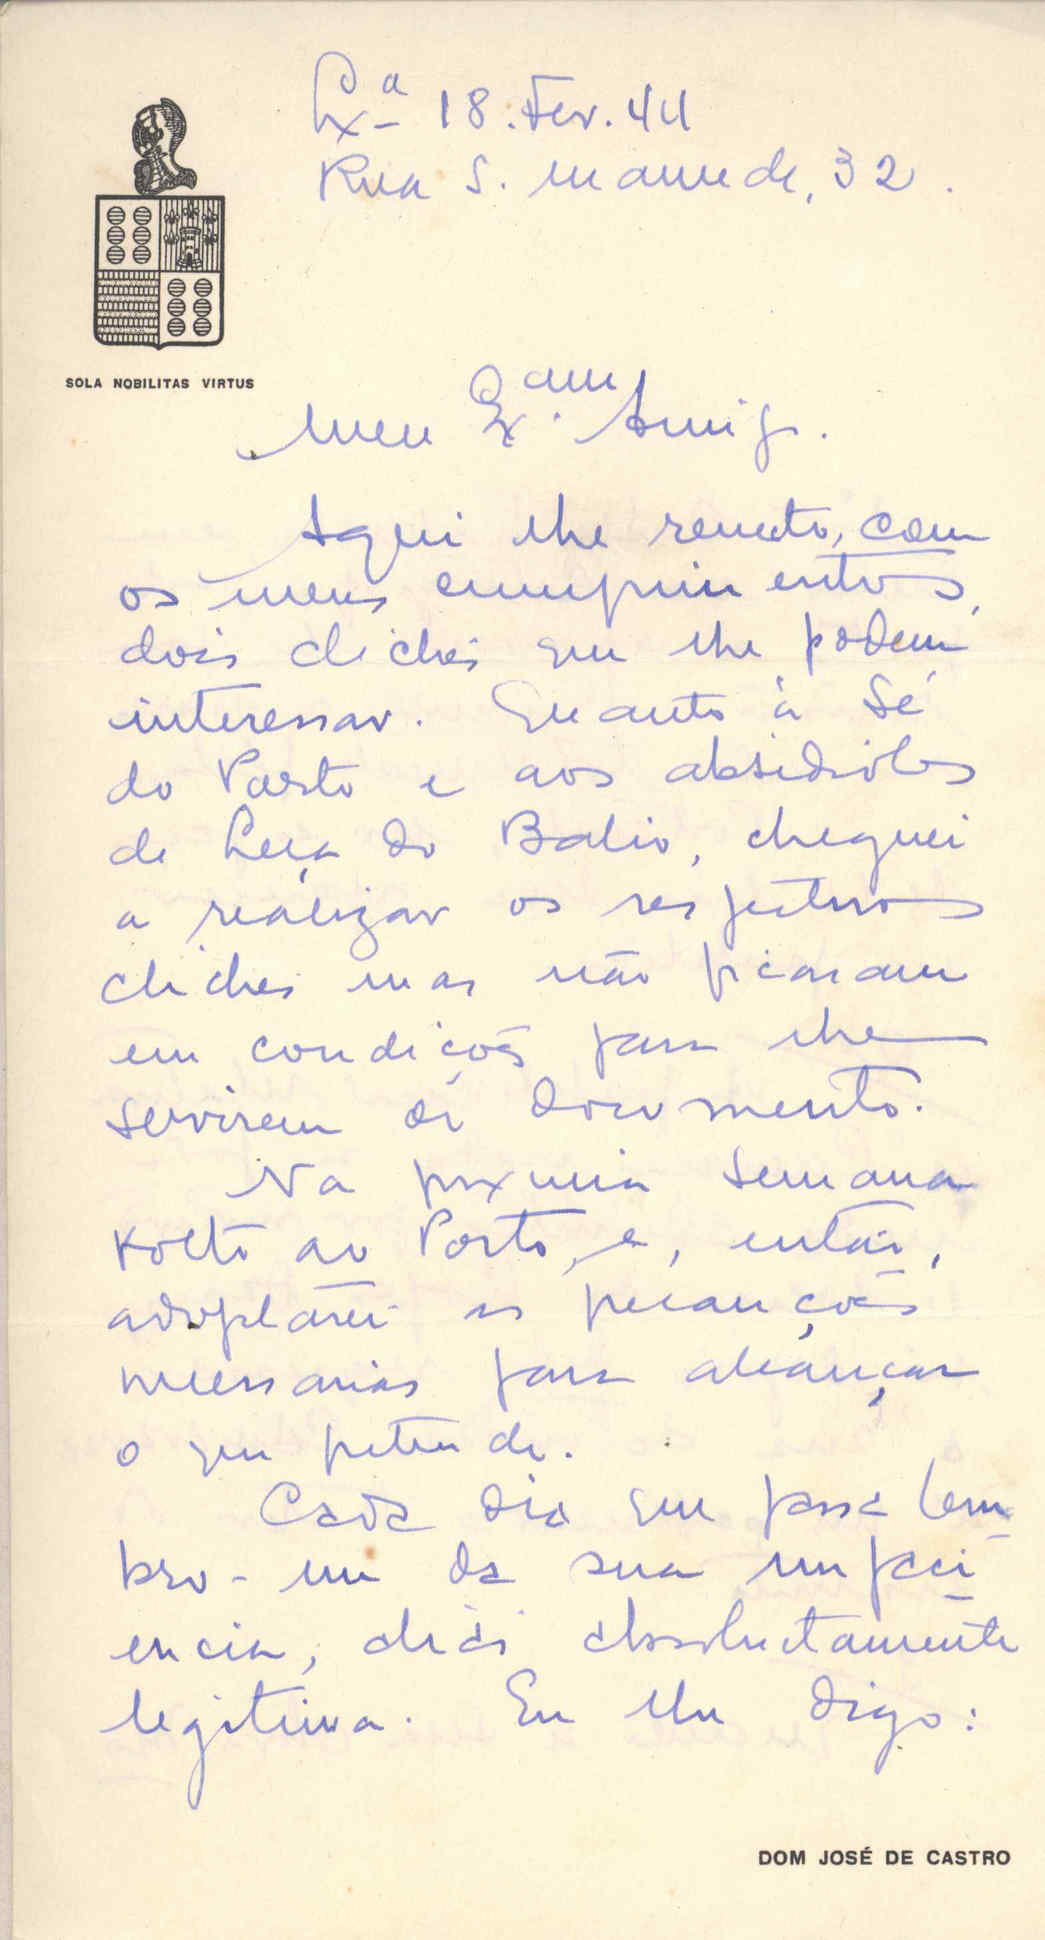 Lxª 18. Fev. 44
Rua S. Mamede, 32.
SOLA NOBILITAS VIRTUS
Meu Ex.amo Amigo.
Aqui lhe remeto, com
os meus cumprimentos,
dois clichés que lhe podem
interessar. Quanto à Sé
do Porto e aos absidiolos
de Leça do Balio, cheguei
a realizar os respectivos
clichés mas não ficaram
em condições para lhe
servirem de documento.
Na proxima semana
volto ao Porto, e, então,
adoptarei as precauções
necessarias para alcançar
o que pretende.
Cada dia que passa lem-
bro-me da sua impaci-
encia, aliás absolutamente
legitima. Eu lhe digo:
DOM JOSÉ DE CASTRO